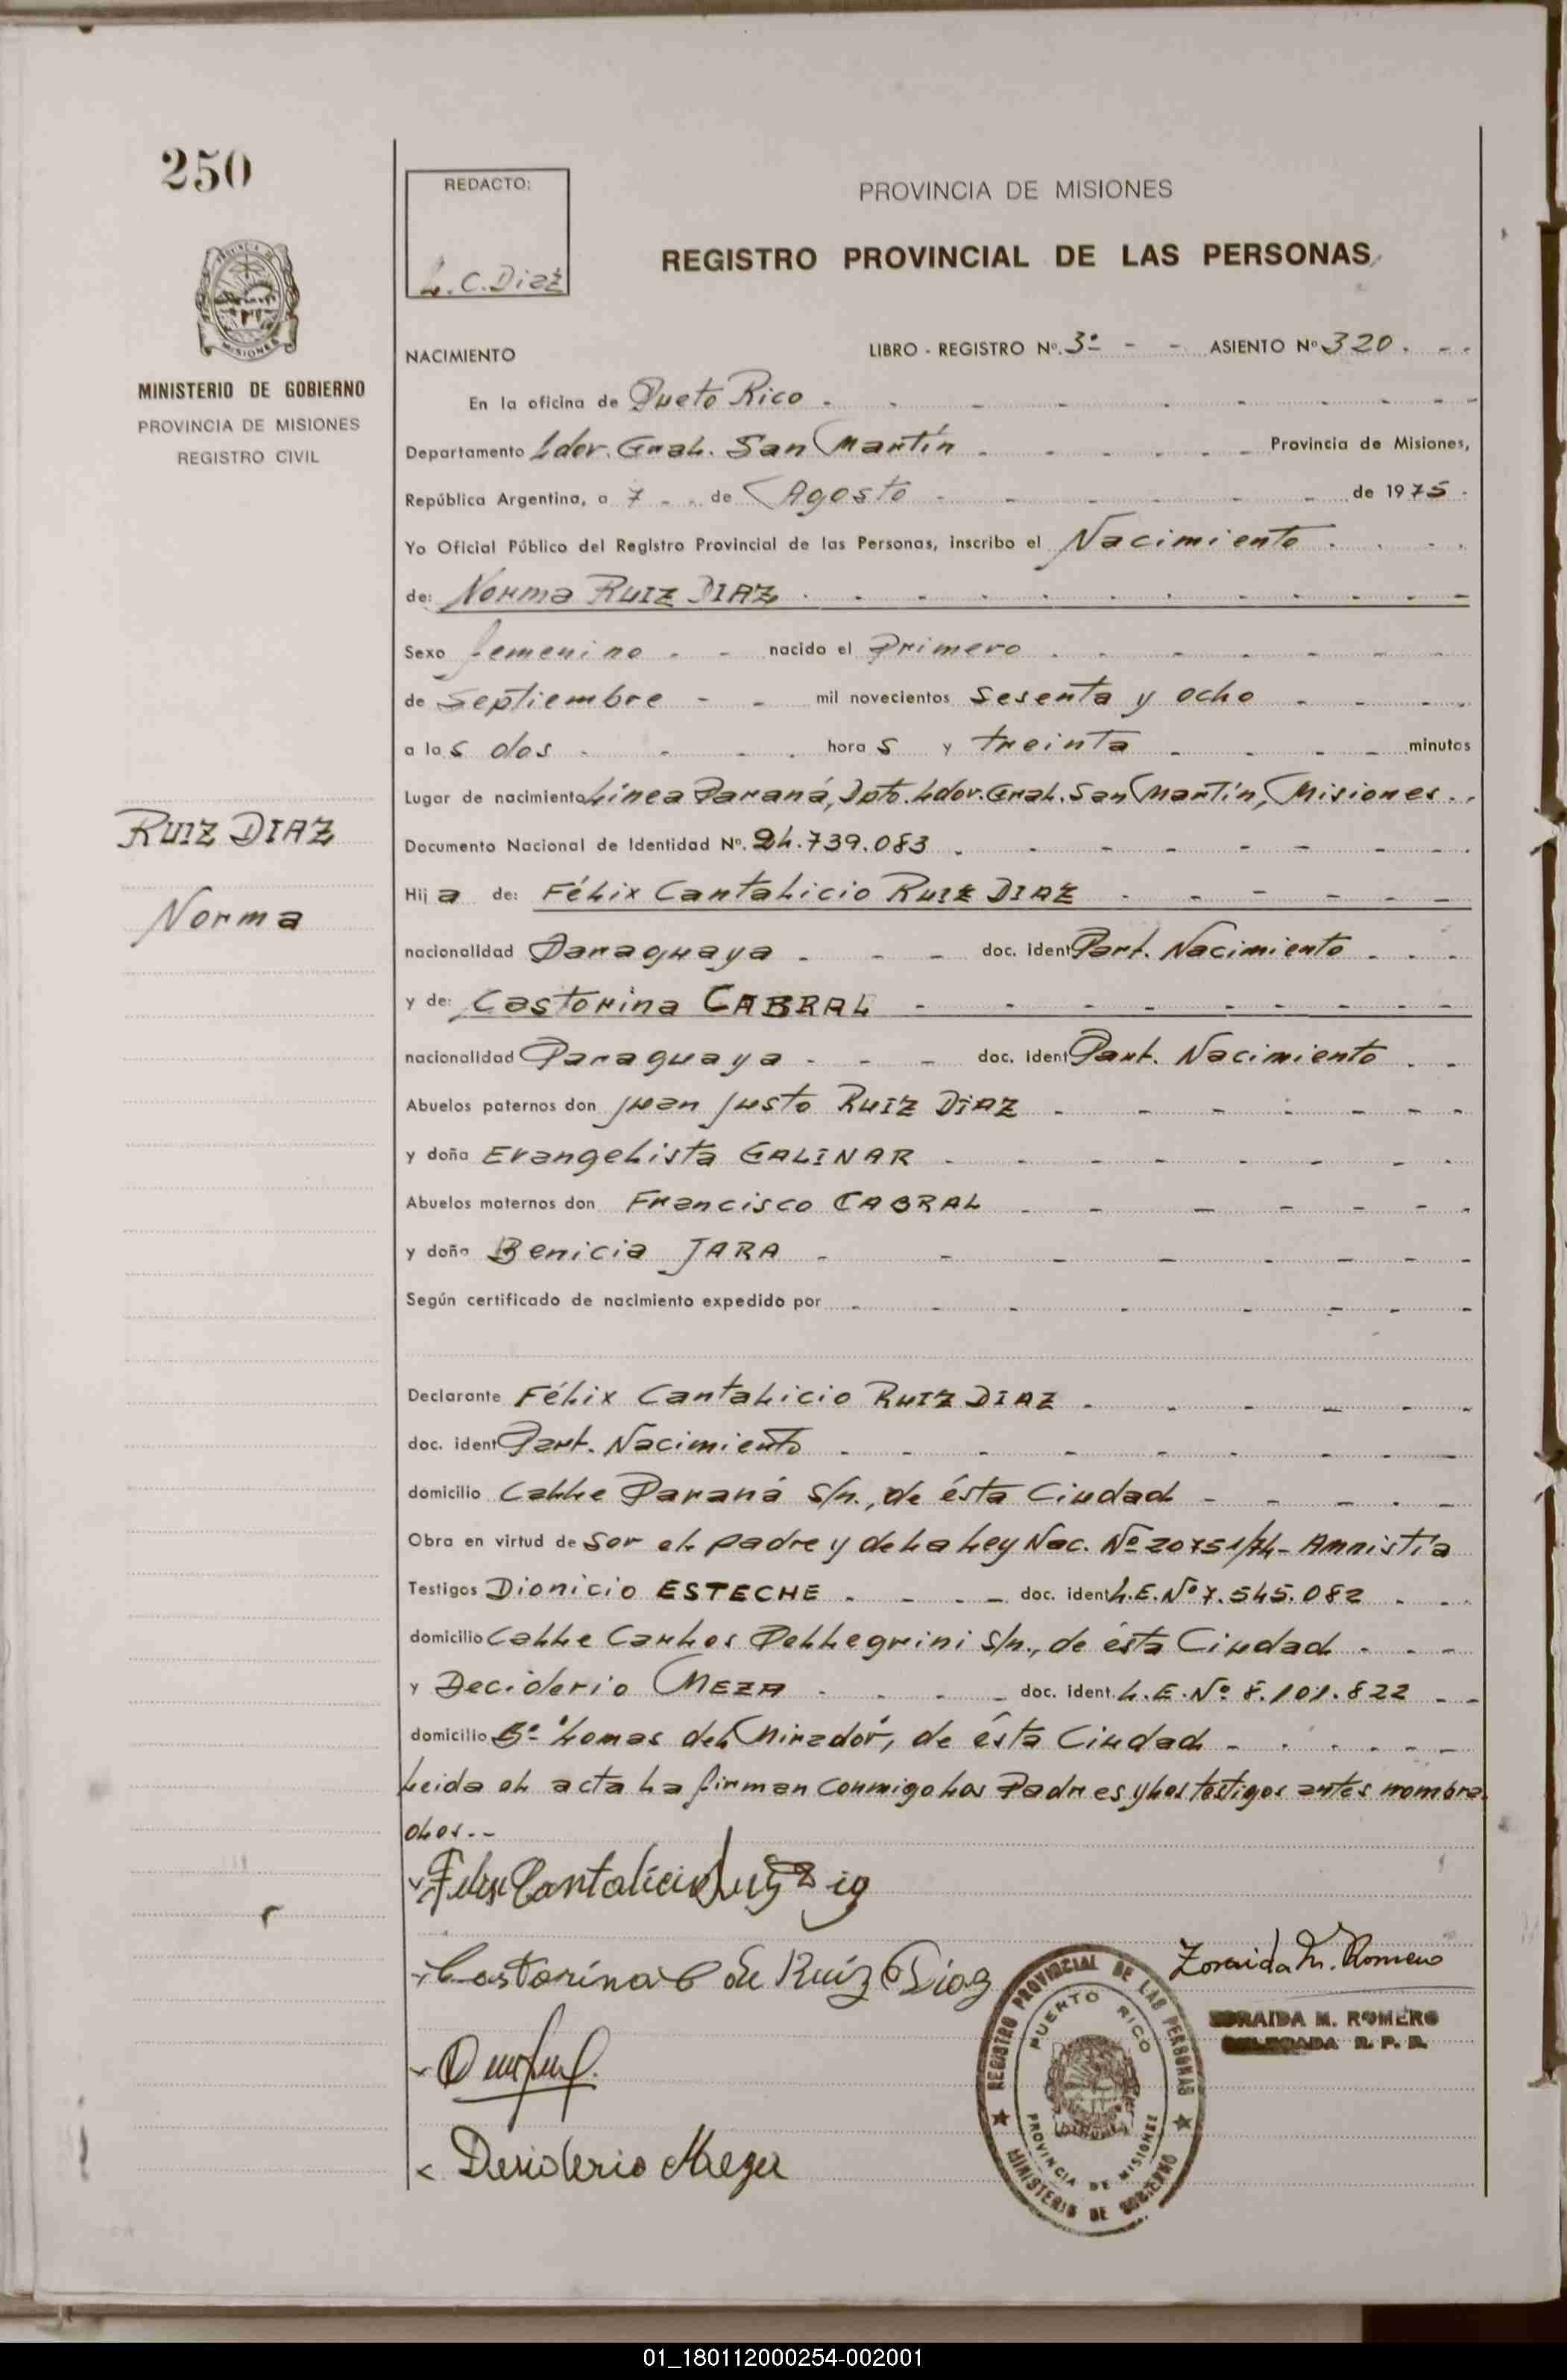 250
REDACTO:
L. C. Diaz
PROVINCIA DE MISIONES
REGISTRO PROVINCIAL DE LAS PERSONAS
MISIONES
MINISTERIO DE GOBIERNO
PROVINCIA DE MISIONES
REGISTRO CIVIL
NACIMIENTO LIBRO - REGISTRO Nº. 3º - - ASIENTO Nº 320. - -
En la oficina de Pueto Rico
Departamento Ldor. Gral. San Martín Provincia de Misiones,
República Argentina, a 7 - - de Agosto de 1975 -
Yo Oficial Público del Registro Provincial de las Personas, inscribo el Nacimiento
de: Norma RUIZ DIAZ
Sexo femenino - - nacido el Primero
de Septiembre - - mil novecientos sesenta y ocho
a las dos hora s y treinta minutos
Lugar de nacimiento Línea Paraná, Dpto. Ldor. Gral. San Martín, Misiones..
RUIZ DIAZ
Norma
Documento Nacional de Identidad Nº. 24.739.083
Hij a de: Félix Cantalicio RUIZ DIAZ
nacionalidad Paraguaya - - - doc. ident Part. Nacimiento
y de: Castorina CABRAL
nacionalidad Paraguaya - - - doc. ident Part. Nacimiento
Abuelos paternos don Juan Justo RUIZ DIAZ
y doña Evangelista GALINAR
Abuelos maternos don Francisco CABRAL
y doña Benicia JARA
Según certificado de nacimiento expedido por
Declarante Félix Cantalicio RUIZ DIAZ
doc. ident Part. Nacimiento
domicilio Calle Paraná s/n., de ésta Ciudad
Obra en virtud de ser el padre y de la Ley Nac. Nº 20751/74- Amnistía
Testigos Dionicio ESTECHE - - - - doc. ident L.E. Nº 7.545.082
domicilio Calle Carlos Pellegrini s/n., de ésta Ciudad
y Deciderio MEZA doc. ident. L.E. Nº 8.101.822 - -
domicilio Bº Lomas del Mirador, de ésta Ciudad
Leida el acta la firman conmigo los Padres y los testigos antes nombra
dos.--
Felix Cantalicio Ruiz Diaz
Castorina C de Ruíz Díaz
Zoraida M. Romero
ZORAIDA M. ROMERO
DELEGADA R. P. P.
Desiderio Meza
REGISTRO PROVINCIAL DE LAS PERSONAS
PUERTO RICO
PROVINCIA DE MISIONES
MINISTERIO DE GOBIERNO
01_180112000254-002001